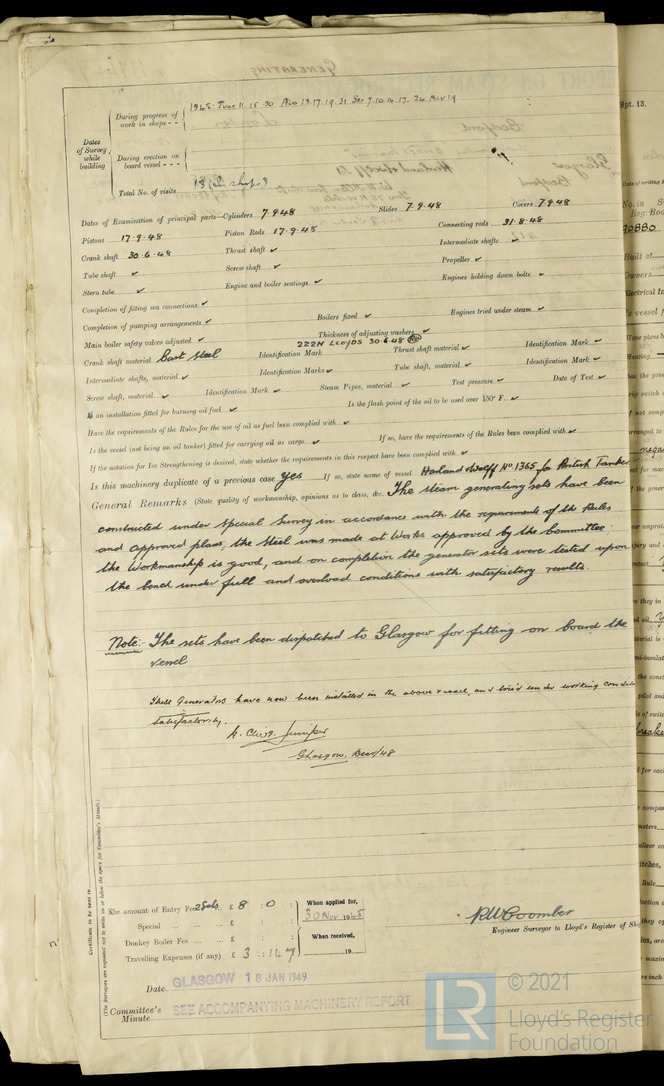 GENERATING
Dates of Survey while building
During progress of work in shops - -
1948: June 11. 15. 30 Aug 13. 17. 19. 31 Sep 7. 10. 14. 17. 24 Nov 19
During erection on board vessel - - -
Total No. of visits 13 (in shops)
Dates of Examination of principal parts—Cylinders 7.9.48 Slides 7.9.48 Covers 7.9.48
Pistons 17.9.48 Piston Rods 17.9.48 Connecting rods 31.8.48
Crank shaft 30.6.48 Thrust shaft ✓ Intermediate shafts ✓
Tube shaft ✓ Screw shaft ✓ Propeller ✓
Stern tube ✓ Engine and boiler seatings ✓ Engines holding down bolts ✓
Completion of fitting sea connections ✓
Completion of pumping arrangements ✓ Boilers fixed ✓ Engines tried under steam ✓
Main boiler safety valves adjusted ✓ Thickness of adjusting washers ✓
Crank shaft material Cast Steel Identification Mark 222N LLOYDS 30.6.48 Thrust shaft material ✓ Identification Mark ✓
Intermediate shafts, material ✓ Identification Marks ✓ Tube shaft, material ✓ Identification Mark ✓
Screw shaft, material ✓ Identification Mark ✓ Steam Pipes, material ✓ Test pressure ✓ Date of Test ✓
Is an installation fitted for burning oil fuel ✓ Is the flash point of the oil to be used over 150° F. ✓
Have the requirements of the Rules for the use of oil as fuel been complied with ✓
Is the vessel (not being an oil tanker) fitted for carrying oil as cargo ✓ If so, have the requirements of the Rules been complied with ✓
If the notation for Ice Strengthening is desired, state whether the requirements in this respect have been complied with ✓
Is this machinery duplicate of a previous case Yes If so, state name of vessel Harland & Wolff No 1365 for British Tanker
General Remarks (State quality of workmanship, opinions as to class, &c. The steam generating sets have been
constructed under Special Survey in accordance with the requirements of the Rules
and approved plans, the steel was made at Works approved by the Committee
the Workmanship is good, and on completion the generator sets were tested upon
the bench under full and overload conditions with satisfactory results.
Note:- The sets have been dispatched to Glasgow for fitting on board the
vessel
These Generators have now been installed in the above vessel, and tried under working condit
satisfactorily.
Glasgow. Decr/48
Certificate to be sent to
(The Surveyors are requested not to write on or below the space for Committee's Minute.)
The amount of Entry Fee 2 Sets £ 8 : 0 : When applied for,
30 Nov 1948
Special £ : :
Donkey Boiler Fee £ : : When received,
Travelling Expenses (if any) £ 3 : 14 : 7 19
RW Coomber
Engineer Surveyor to Lloyd's Register of Shi
Date GLASGOW 18 JAN 1949
Committee's Minute SEE ACCOMPANYING MACHINERY REPORT
Rpt. 13.
LR © 2021
Lloyd's Register
Foundation